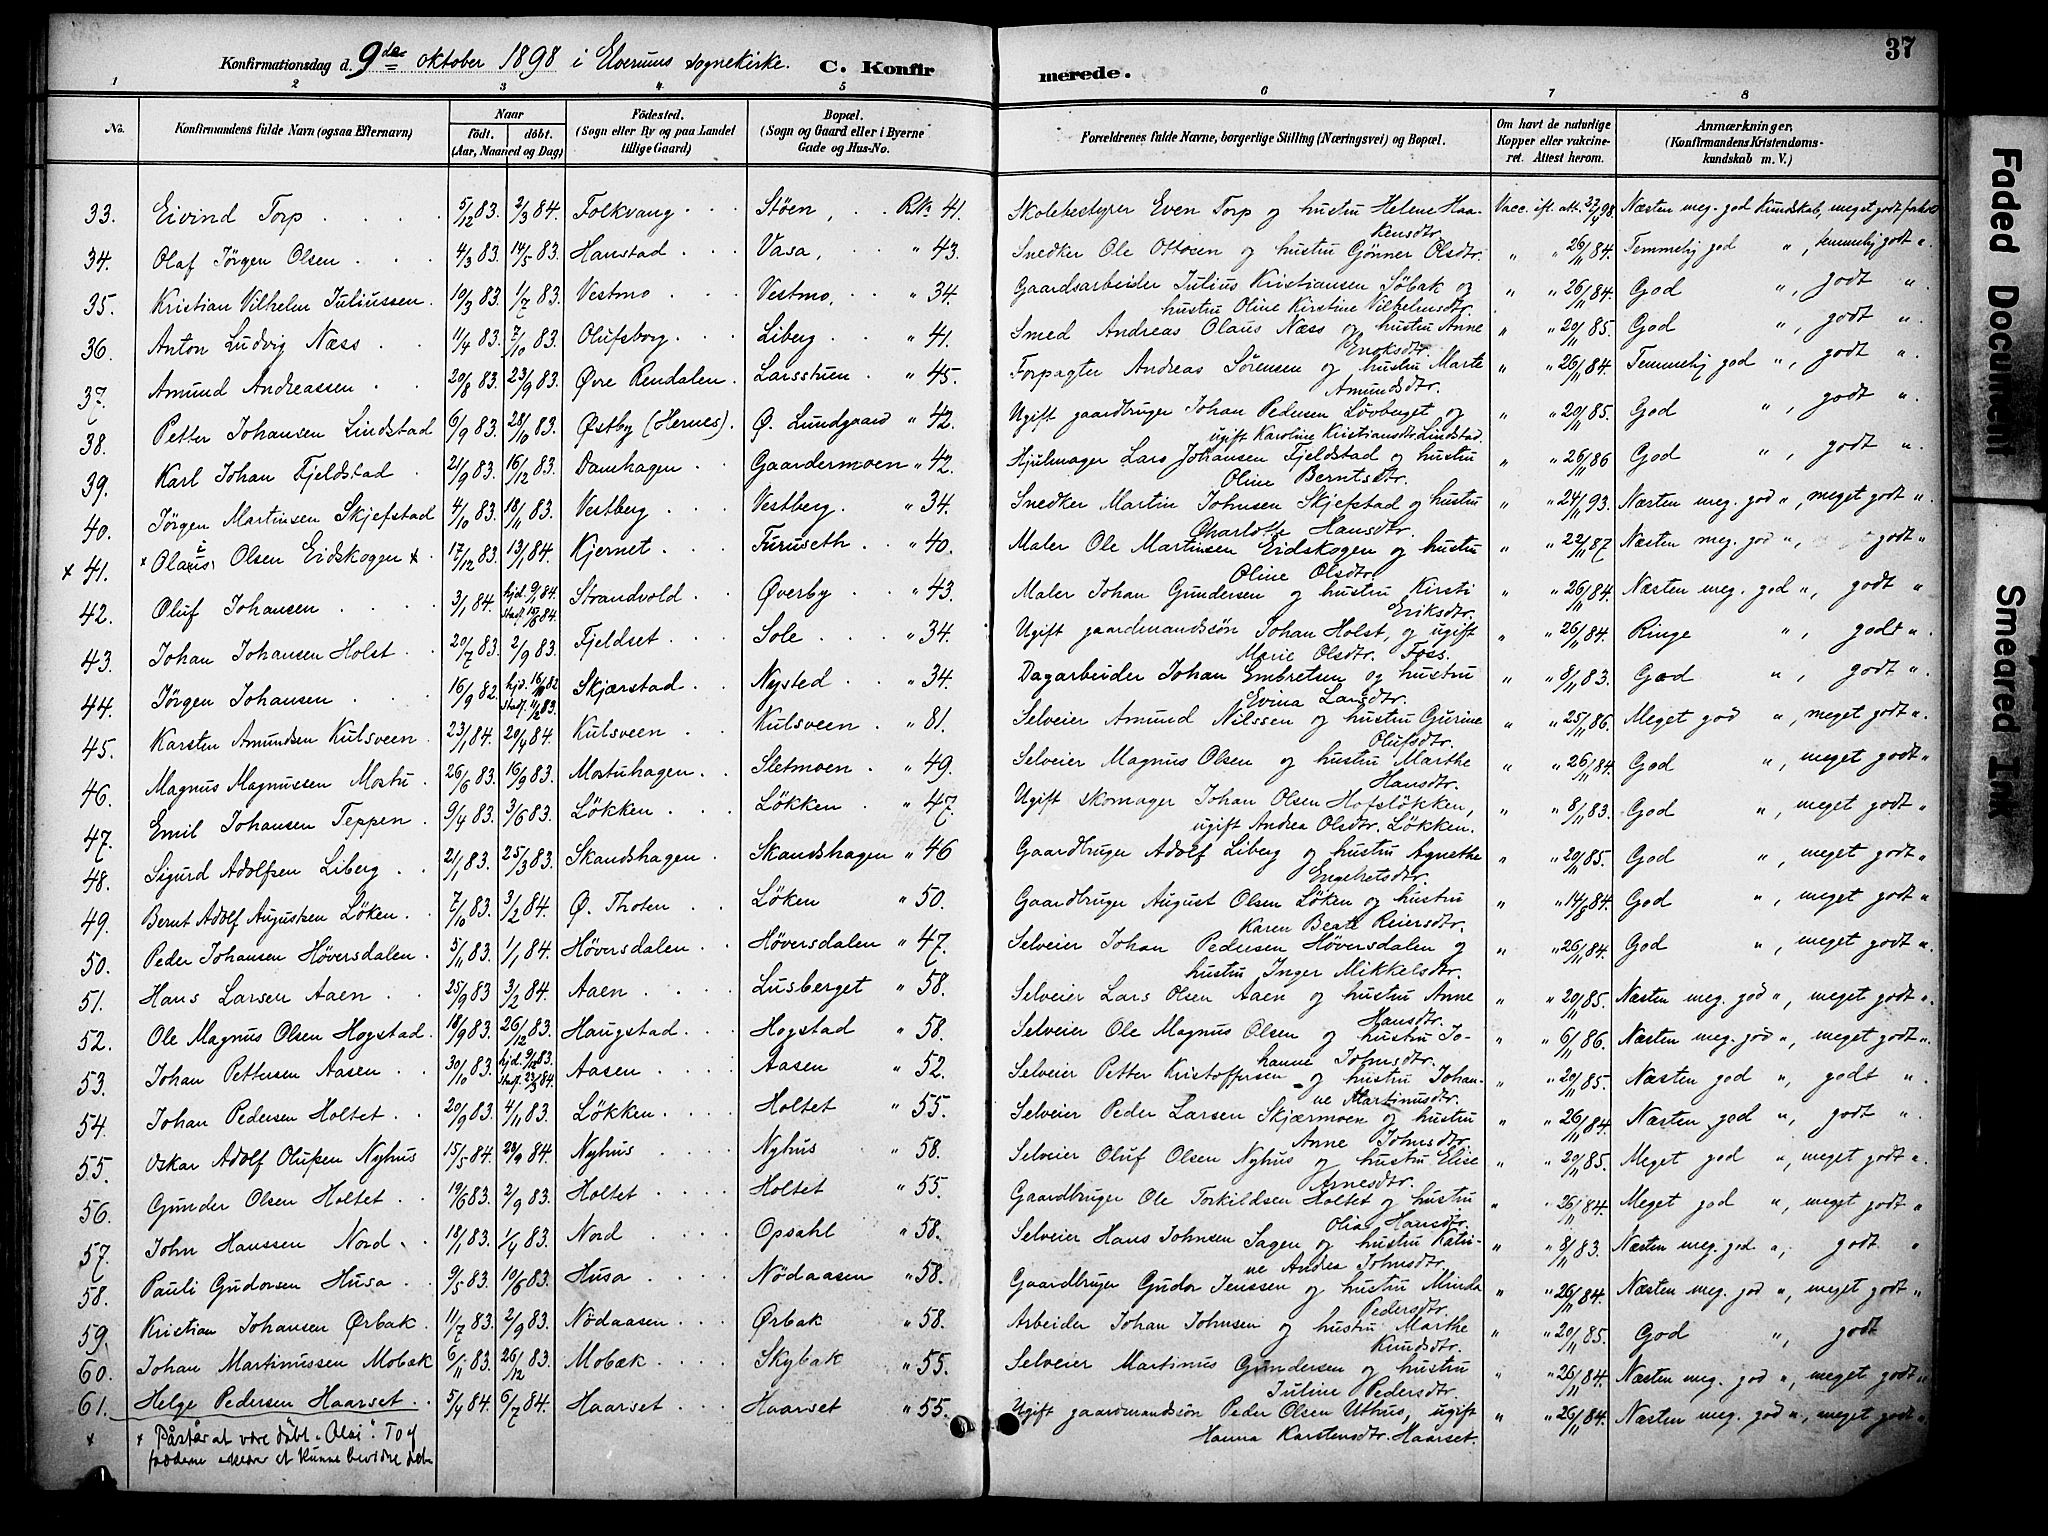 Konfirmationsdag d. 9de oktober 1898 i Elverums sognekirke. C. Konfir
merede. 37
1 2 3 4 5 6 7 8
No. Konfirmandens fulde Navn (ogsaa Efternavn) Naar født. døbt. (Aar, Maaned og Dag) Fødested. (Sogn eller By og paa Landet tillige Gaard) Bopæl. (Sogn og Gaard eller i Byerne Gade og Hus-No. Forældrenes fulde Navne, borgerlige Stilling (Næringsvei) og Bopæl. Om havt de naturlige Kopper eller vakcineret. Attest herom. Anmærkninger. (Konfirmandens Kristendomskundskab m. V.)
33. Eivind Torp 5/12 83. 2/3 84. Folkvang Støen, Rk. 41. Skolebestyrer Even Torp og hustru Helene Haakensdtr. Vacc. ifl. att. 22/4 98. Næsten meg. god Kundskab, meget godt forhold
34. Olaf Jørgen Olsen 4/3 83. 14/5 83. Hanstad Vasa, " 43. Snedker Ole Ottosen og hustru Gjønner Olsdtr. " " 26/11 84. Temmelig god ", temmelig godt ".
35. Kristian Vilhelm Juliussen. 10/3 83. 1/7 83. Vestmo Vestmo, " 34. Gaardsarbeider Julius Kristiansen Söbak og hustru Oline Kirstine Vilhelmsdtr. " " 26/11 84. God ", godt ".
36. Anton Ludvig Næss 11/4 83. 7/10 83. Olufsborg Liberg " 41. Smed Andreas Olaus Næss og hustru Anne Eriksdtr. " " 20/11 85. God ", godt "
37. Amund Andreassen 20/8 83. 23/9 83. Øvre Rendalen. Larsstuen " 45. Forpagter Andreas Sørensen og hustru Marte Amundsdtr. " " 26/11 84. Temmelig god ", godt "
38. Petter Johansen Lindstad 6/9 83. 28/10 83. Østby (Hernes). Ø. Lundgaard " 42. Ugift gaardbruger Johan Pedersen Lövberget og ugift Karoline Kristiansdtr Lindstad. " " 20/11 85. God ", godt ".
39. Karl Johan Fjeldstad 21/9 83. 16/12 83. Damhagen Gaardermoen " 42. Hjulmager Lars Johansen Fjeldstad og hustru Oline Berntsdtr. " " 26/11 86 God ", godt "
40. Jörgen Martinsen Skjefstad 4/10 83. 18/11 83. Vestberg Vestberg. " 34. Snedker Martin Johnsen Skjefstad og hustru Charlotte Hansdtr. " " 24/11 93. Næsten meg. god ", meget godt ".
x 41. x Olaus Olsen Eidskogen x 17/12 83. 13/1 84. Kjernet Furuseth " 40. Maler Ole Martinsen Eidskogen og hustru Oline Olsdtr. " " 22/11 87 Næsten meg. god ", godt ".
42. Oluf Johansen 3/1 84. hjd. 9/1 84. stadf. 15/8 84. Strandvold Øverby " 43. Maler Johan Gundersen og hustru Kirsti Eriksdtr. " " 26/11 84. Næsten meg. god ", godt "
43. Johan Johansen Holst 20/7 83. 2/9 83. Fjeldset Sole " 34. Ugift gaardmandsön Johan Holst, og ugift Marie Olsdtr. Foss. " " 26/11 84. Ringe ", godt ".
44. Jörgen Johansen 16/9 82. hjd. 16/10 82 stadf. 11/2 83. Skjærstad Nysted " 34. Dagarbeider Johan Embretsen og hustru Evina Larsdtr. " " 8/11 83. God ", godt "
45. Karsten Amundsen Kulsveen. 23/1 84. 20/4 84. Kulsveen Kulsveen " 81. Selveier Amund Nilssen og hustru Gurine Olufsdtr. " " 25/11 86. Meget god ", meget godt ".
46. Magnus Magnussen Mostu 26/6 83. 16/9 83. Mostuhagen Sletmoen " 49. Selveier Magnus Olsen og hustru Marthe Hansdtr. " " 26/11 84. God ", meget godt "
47. Emil Johansen Teppen 9/4 83. 3/6 83. Lökken Lökken " 47. Ugift skomager Johan Olsen Hofslökken, ugift Andrea Olsdtr. Lökken. " " 8/11 83. God ", meget godt "
48. Sigurd Adolfsen Liberg 21/1 83. 25/3 83. Skandshagen Skandshagen " 46 Gaardbruger Adolf Liberg og hustru Agnethe Engebretsdtr. " " 20/11 85. God ", meget godt "
49. Bernt Adolf Augustsen Löken. 7/10 83. 3/2 84. Ø. Thoten Löken " 50. Gaardbruger August Olsen Löken og hustru Karen Beate Reiersdtr. " " 14/8 84. God ", meget godt "
50. Peder Johansen Höversdalen 5/11 83. 1/1 84. Höversdalen Höversdalen " 47. Selveier Johan Pedersen Höversdalen og hustru Inger Mikkelsdtr. " " 26/11 84. God ", meget godt ".
51. Hans Larsen Aaen 25/9 83 3/2 84. Aaen Lusberget " 58. Selveier Lars Olsen Aaen og hustru Anne Hansdtr. " " 20/11 85. Næsten meg. god ", meget godt ".
52. Ole Magnus Olsen Hogstad. 18/9 83. 26/12 83. Haugstad Hogstad " 58. Selveier Ole Magnus Olsen og hustru Johanne Johnsdtr. " " 6/11 86. Næsten meg. god ", meget godt ".
53. Johan Pettersen Aasen 30/10 83. hjd. 9/12 83. stadf. 23/3 84. Aasen Aasen " 52. Selveier Petter Kristoffersen og hustru Johanne Martinusdtr. " " 20/11 85. Næsten god ", godt "
54. Johan Pedersen Holtet 20/9 83. 4/11 83. Lökken Holtet " 55. Selveier Peder Larsen Skjærmoen og hustru Anne Johnsdtr. " " 26/11 84. Næsten god ", godt "
55. Oskar Adolf Olufsen Nyhus 15/5 84. 84. Nyhus Nyhus " 58. Selveier Oluf Olsen Nyhus og hustru Elise Arnesdtr. " " 20/11 85. Meget god ", meget godt ".
56. Gunder Olsen Holtet 19/6 83. 2/9 83. Holtet Holtet " 55. Gaardbruger Ole Torkildsen Holtet og hustru Olia Hansdtr. " " 26/11 84. Meget god ", meget godt "
57. John Hanssen Nord 18/1 83. 1/4 83. Nord Opsahl " 58. Selveier Hans Johnsen Sagen og hustru Katrine Andrea Johnsdtr. " " 8/11 83. Næsten meg. god ", godt "
58. Pauli Gudorsen Husa 9/5 83. 10/6 83. Husa Nödaasen " 58. Gaardbruger Gudor Jenssen og hustru Minda Pedersdtr. " " 26/11 84. Næsten meg. god ", meget godt "
59. Kristian Johansen Ørbak. 11/7 83. 2/9 83. Nödaasen Ørbak " 58. Arbeider Johan Johnsen og hustru Marthe Knudsdtr. " " 20/11 85. God ", godt
60. Johan Martinussen Mobæk 6/11 83. 26/12 83. Mobæk Skybak " 55. Selveier Martinus Gundersen og hustru Juline Pedersdtr. " " 26/11 84. Næsten meg. god ", meget godt "
61. Helge Pedersen Haarset. 5/4 84. 6/7 84. Haarset Haarset " 55. Ugift gaardmandsön Peder Olsen Uthus, ugift Hanna Karstensdtr. Haarset. " " 26/11 84. Næsten meg. god ", meget godt ".
x x Påstår at være døbt "Olai".
Faded Document
Smeared Ink